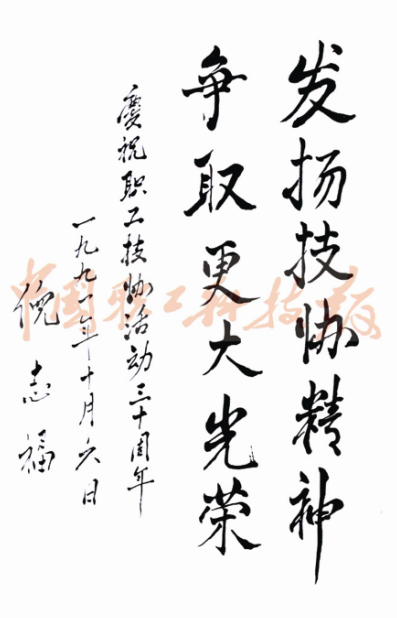 发扬技协精神
争取更大光荣
庆祝职工技协活动三十周年
一九九一年十月六日
倪志福
中国职工科技报